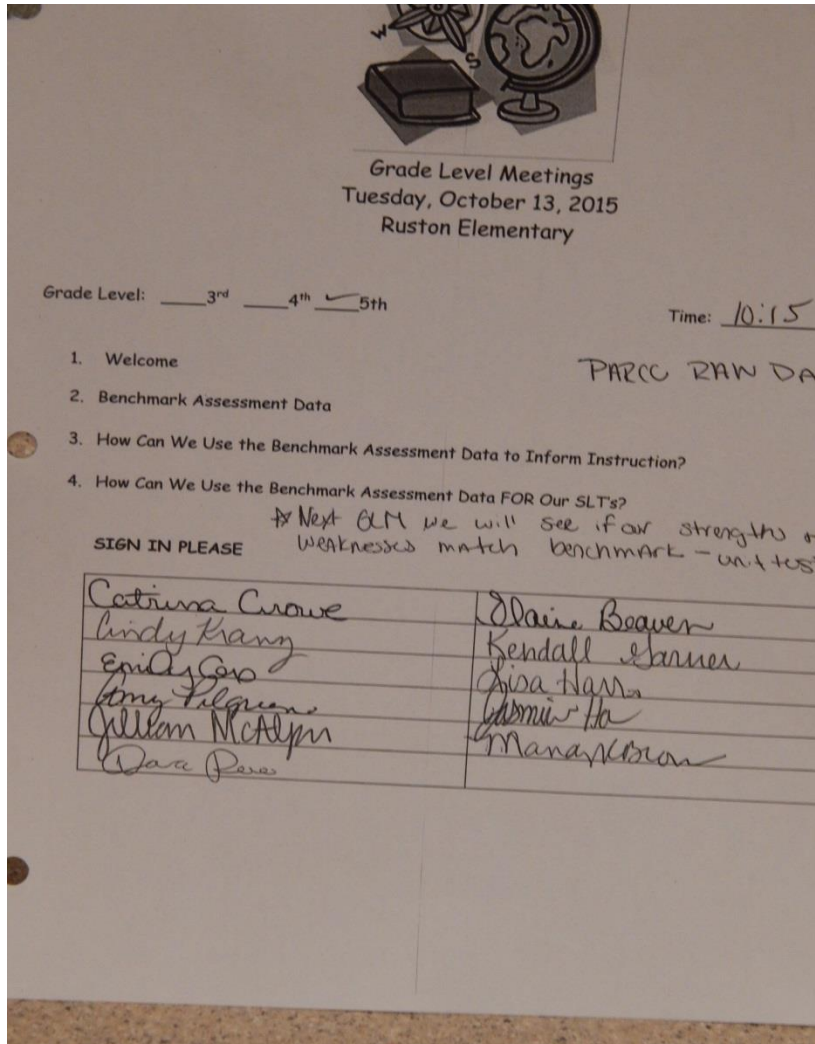 W
S
Grade Level Meetings
Tuesday, October 13, 2015
Ruston Elementary
Grade Level: ____3rd ____4th ____5th
Time: 10:15
PARCC RAW DA
1. Welcome
2. Benchmark Assessment Data
3. How Can We Use the Benchmark Assessment Data to Inform Instruction?
4. How Can We Use the Benchmark Assessment Data FOR Our SLT's?
Next GLM we will see if our strengths
SIGN IN PLEASE
weaknesses match benchmark - unit tes
Catrina Crowe
Elaine Beaver
Cindy
Kendall Garner
Emily
Lisa
Amy
Jasmin
Jillian McAlpin